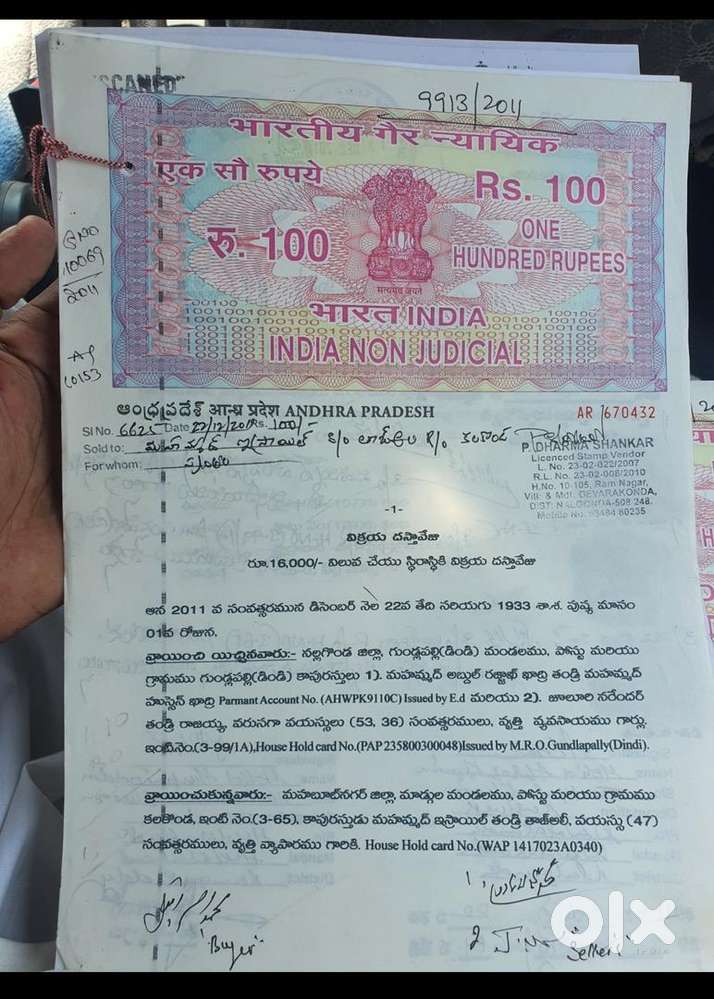 "SCANED"
9913/2011
भारतीय गैर न्यायिक
एक सौ रुपये
Rs. 100
रु. 100
ONE
HUNDRED RUPEES
सत्यमेव जयते
भारत INDIA
INDIA NON JUDICIAL
10069
2011
10153
ఆంధ్రప్రదేశ్ आन्ध्र प्रदेश ANDHRA PRADESH
AR 670432
Sl No. 6625 Date 22/12/2011 Rs. 100/-
Sold to: మహమ్మద్ ఇస్రాయిల్ S/o R/o
For whom:
P. DHARMA SHANKAR
Licenced Stamp Vendor
L. No. 23-02-022/2007
R.L. No. 23-02-008/2010
H.No. 10-105, Ram Nagar,
Vill. & Mdl. DEVARAKONDA,
DIST: NALGONDA-508 248.
-1-
విక్రయ దస్తావేజు
రూ.16,000/- విలువ చేయు స్థిరాస్థికి విక్రయ దస్తావేజు
అన 2011 వ సంవత్సరమున డిసెంబర్ నెల 22వ తేది సరియగు 1933 శా.శ. పుష్య మాసం
01వ రోజున.
వ్రాయించి యిచ్చినవారు:- నల్లగొండ జిల్లా, గుండ్లపల్లి(డిండి) మండలము, పోస్టు మరియు
గ్రామము గుండ్లపల్లి(డిండి) కాపురస్తులు 1). మహమ్మద్ అబ్దుల్ రజ్జాఖ్ ఖాద్రి తండ్రి మహమ్మద్
హుస్సేన్ ఖాద్రి Parmant Account No. (AHWPK9110C) Issued by E.d మరియు 2). జూలూరి నరేందర్
తండ్రి రాజయ్య, వరుసగా వయస్సులు (53, 36) సంవత్సరములు, వృత్తి వ్యవసాయము గార్లు.
ఇంటి.నెం.(3-99/1A),House Hold card No.(PAP 235800300048)Issued by M.R.O.Gundlapally(Dindi).
వ్రాయించుకున్నవారు:- మహబూబ్‌నగర్ జిల్లా, మాడ్గుల మండలము, పోస్టు మరియు గ్రామము
కలకొండ, ఇంటి నెం.(3-65), కాపురస్తుడు మహమ్మద్ ఇస్రాయిల్ తండ్రి తాజ్‌అలీ, వయస్సు (47)
సంవత్సరములు, వృత్తి వ్యాపారము గారికి. House Hold card No.(WAP 1417023A0340)
'Buyer'
'Sellers'
olx